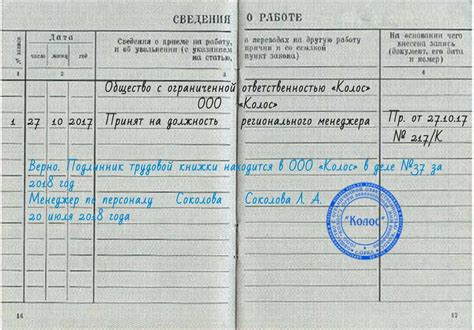 СВЕДЕНИЯ О РАБОТЕ
№ записи
Дата
Сведения о приеме на работу, о переводах на другую работу
и об увольнении (с указанием причин и со ссылкой
на статью, пункт закона)
На основании чего
внесена запись
(документ, его дата
и номер)
число месяц год
1 2 3 4
Общество с ограниченной ответственностью «Колос»
ООО «Колос»
1 27 10 2017 Принят на должность регионального менеджера Пр. от 27.10.17
№ 217/К
Верно. Подлинник трудовой книжки находится в ООО «Колос» в деле №37 за
2018 год
Менеджер по персоналу Соколова Соколова Л. А.
20 июля 2018 года
"Колос"
16 17